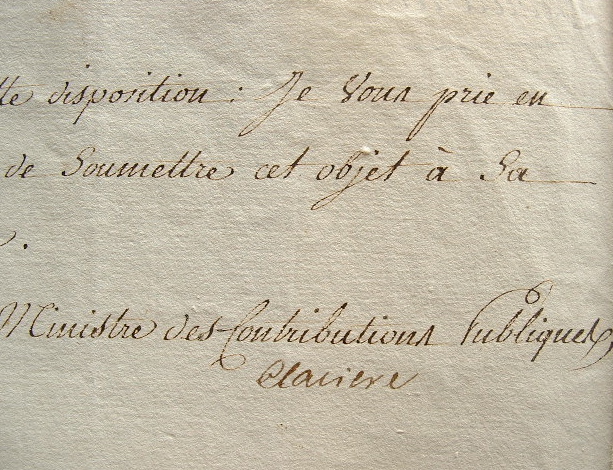 tte disposition : Je Vous prie en
de Soumettre cet objet à Sa
.
Ministre des Contributions Publiques,
Claviere